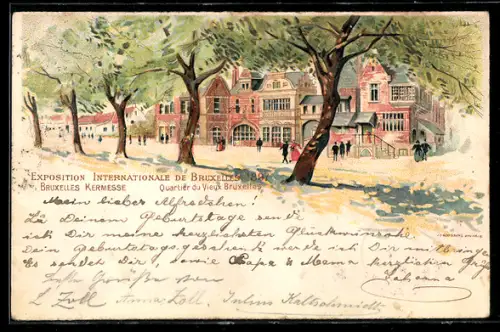 EXPOSITION INTERNATIONALE DE BRUXELLES 1897
BRUXELLES KERMESSE Quartier du Vieux Bruxelles
Mein lieber Alfredchen!
Zu Deinem Geburtstage sende
ich Dir meine herzlichsten Glückwünsche.
Dein Geburtstagsgeschenk werde ich Dir mitbringen
Es sendet Dir, sowie Papa & Mama herzlichen
Johanna
Grüsse von
L. Zoll Anna Zoll. Julius Kaltschmidt